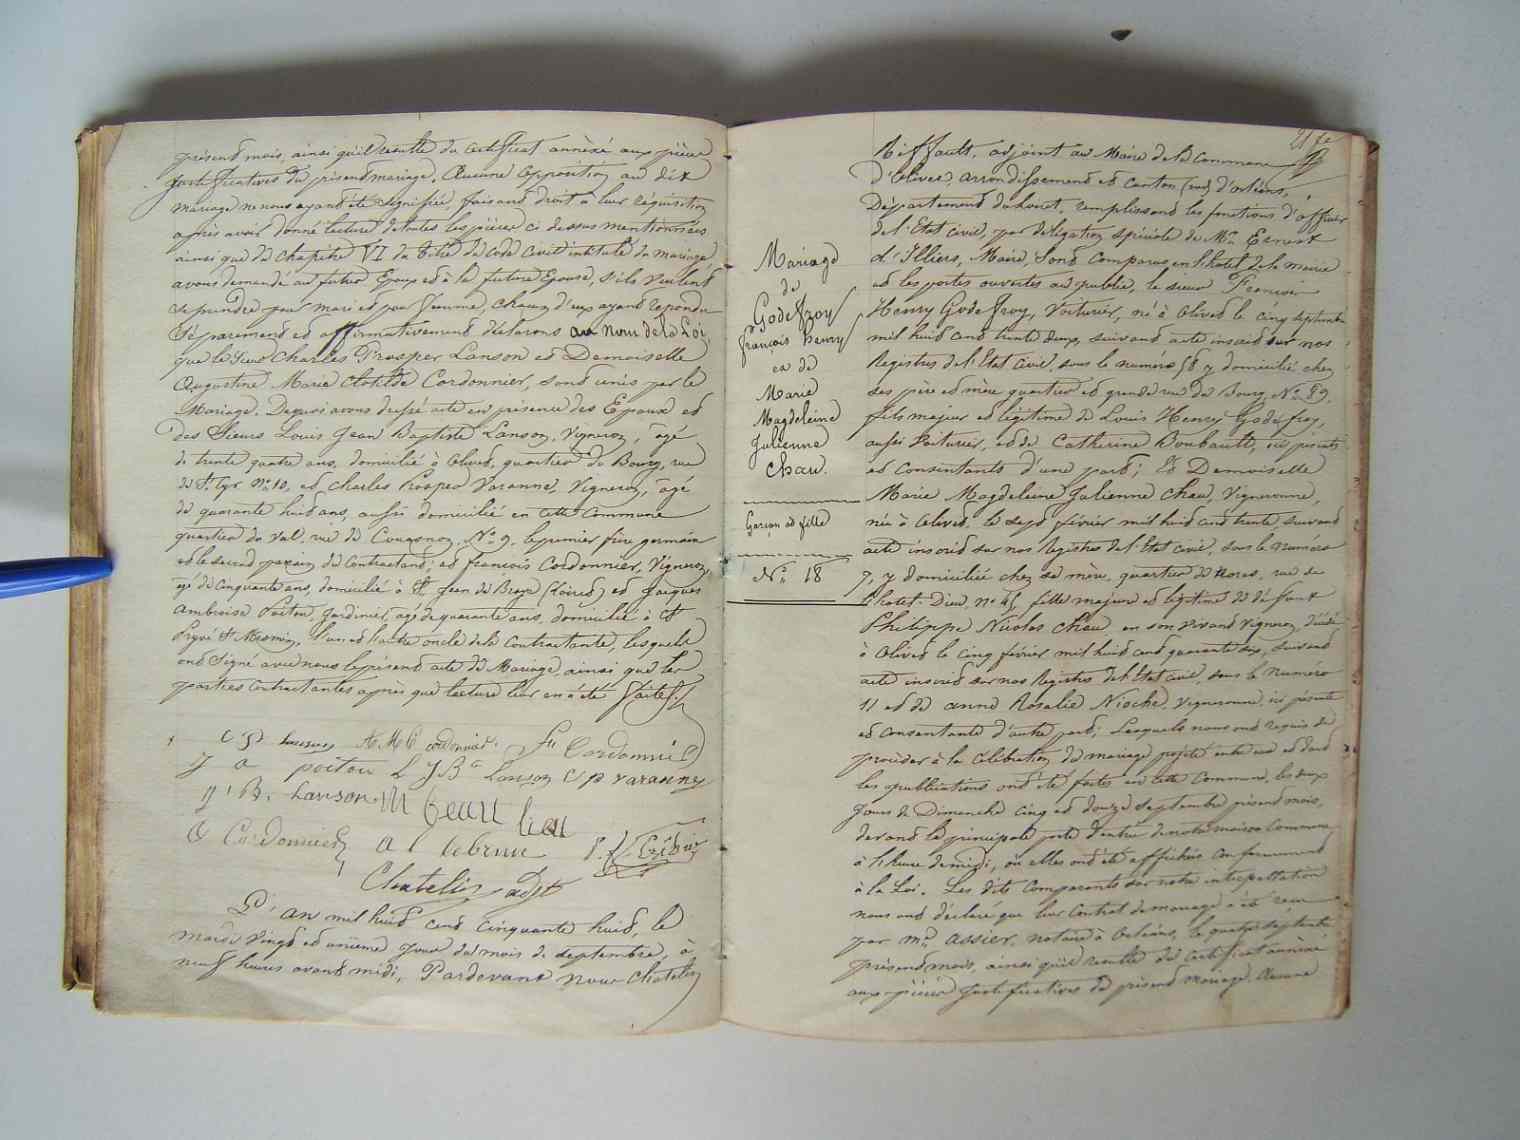 présent mois, ainsi qu'il resulte du certificat annèxé aux pièces
justificatives du présent mariage. Aucune opposition au dit
mariage ne nous ayant été signifiée, faisant droit à leur réquisition
après avoir donné lecture de toutes les pièces ci dessus mentionnées
ainsi que du chapitre VI du Titre du Code Civil intitulé du mariage,
avons demandé au futur Epoux et à la future Epouse, s'ils veulent
se prendre pour mari et pour femme, chacun d'eux ayant repondu
séparement et affirmativement déclarons au nom de la Loi,
que le sieur Charles Prosper Lanson et Demoiselle
Augustine Marie Clotilde Cordonnier, sont unis par le
Mariage. De quoi avons dressé acte en présence des Epoux et
des Sieurs Louis Jean Baptiste Lanson, Vigneron, agé
de trente quatre ans, domicilié à Olivet, quartier du Bourg, rue
de St. Cyr No. 10, et Charles Prosper Varanne, Vigneron, agé
de quarante huit ans, aussi domicilié en cette Commune
quartier du val, rue de Couasnon, No. 9, le premier frère germain
et le second parrain du Contractant; et francois Cordonnier, Vigneron,
agé de Cinquante ans, domicilié à St Jean de Braye (Loiret) et Jacques
Ambroise Poitou, Jardinier, agé de quarante ans, domicilié à St
Pryvé St. Mesmin, l'un et l'autre oncle de la Contractante, lesquels
ont Signé avec nous le présent acte de Mariage, ainsi que les
parties contractantes après que lecture leur en a été faite.
C P Lanson A M C cordonnier fs Cordonnier
J A poitou L J B te Lanson C p varanne
J B. Lanson M
Cordonnier A L lebrun
Chatelin adjt
L'an mil huit cent Cinquante huit, le
mardi vingt et unième jour du mois de septembre, à
neuf heures avant midi, Pardevant nous Chatelin
21 fe
Riffault, adjoint au Maire de la Commune
d'Olivet, arrondissement et Canton (sud) d'orléans,
Département du Loiret, remplissant les fonctions d'officier
de l'Etat civil, par délégation spéciale de Mr. Ernest
d'Illiers, Maire, sont Comparus en l'hotel de la mairie
et les portes ouvertes au public, le sieur Francois
Henry Godeffroy, Voiturier, né à Olivet le cinq septembre
mil huit cent trente deux, suivant acte inscrit sur nos
Registres de l'Etat Civil, sous le numéro 58 y domicilié chez
ses père et mère quartier et grande rue du Bourg, No. 89,
fils majeur et légitime de Louis Henry Godeffroy,
aussi Voiturier, et de Catherine Bombault, ici présents
et consentants d'une part; Et Demoiselle
Marie Magdeleine Julienne Chau, Vigneronne,
née à Olivet, le sept février mil huit cent trente, suivant
acte inscrit sur nos Registres de l'Etat civil, sous le numéro
7, y domiciliée chez sa mère, quartier de Nores, rue de
l'hotel-Dieu, no. 45, fille majeure et légitime de défunt
Philippe Nicolas Chau en son vivant Vigneron, décédé
à Olivet le cinq février mil huit cent quarante six, suivant
acte inscrit sur nos Registres de l'Etat civil, sous le numéro
11 et de anne Rosalie Nioche, Vigneronne, ici présente
et Consentante d'autre part; Lesquels nous ont requis de
procéder à la Célébration du mariage projeté entre eux et dont
les publications ont été faites en cette Commune, les deux
Jours de Dimenche cinq et douze septembre présent mois,
devant la principale porte d'entrée de notre maison Commune
à l'heure de midi, où elles ont été affichées Conformement
à la Loi. Les dits Comparants sur notre interpellation
nous ont déclaré que leur Contrat de mariage a été recu
par me. assier, notaire à Orléans, le quatre septembre
présent mois, ainsi qu'il resulte du certificat annèxé
aux pièces justificatives du présent mariage. Aucune
Mariage
de
Godeffroy
françois henry
et de
Marie
Magdeleine
Julienne
Chau.
Garçon et fille
No. 18